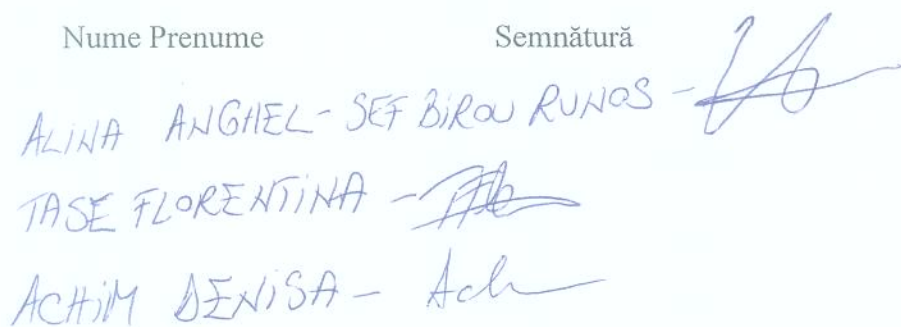 Nume Prenume Semnătură
ALINA ANGHEL - SEF BIROU RUNOS -
TASE FLORENTINA -
ACHIM DENISA - Ach